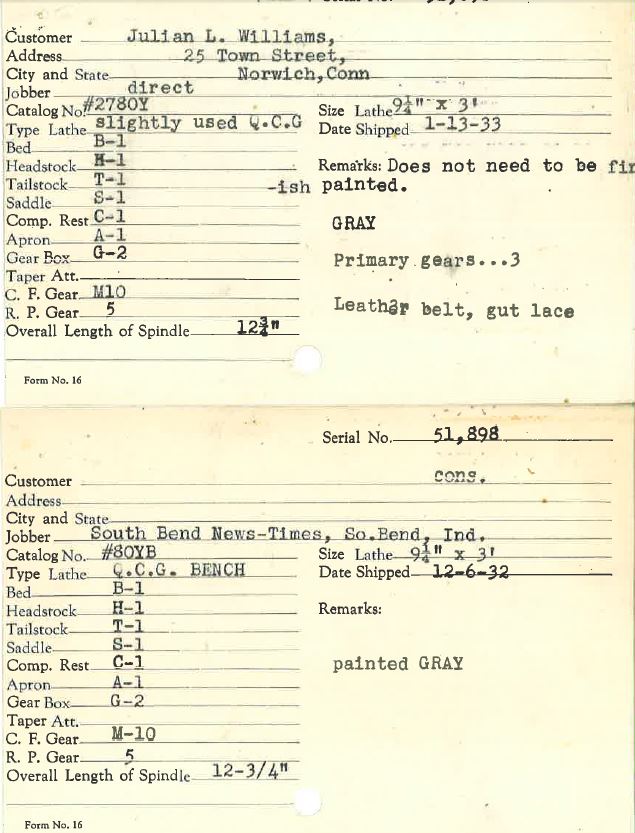 Customer Julian L. Williams,
Address 25 Town Street,
City and State Norwich,Conn
Jobber direct
Catalog No. #2780Y Size Lathe 9¼" x 3'
Type Lathe slightly used Q.C.G Date Shipped 1-13-33
Bed B-1
Headstock H-1 Remarks: Does not need to be fin
Tailstock T-1 -ish painted.
Saddle S-1
Comp. Rest C-1 GRAY
Apron A-1
Gear Box G-2 Primary gears...3
Taper Att.
C. F. Gear M10
R. P. Gear 5 Leather belt, gut lace
Overall Length of Spindle 12¾"
Form No. 16
Serial No. 51,898
Customer cons.
Address
City and State
Jobber South Bend News-Times, So.Bend, Ind.
Catalog No. #80YB Size Lathe 9¼" x 3'
Type Lathe Q.C.G. BENCH Date Shipped 12-6-32
Bed B-1
Headstock H-1 Remarks:
Tailstock T-1
Saddle S-1
Comp. Rest C-1 painted GRAY
Apron A-1
Gear Box G-2
Taper Att.
C. F. Gear M-10
R. P. Gear 5
Overall Length of Spindle 12-3/4"
Form No. 16